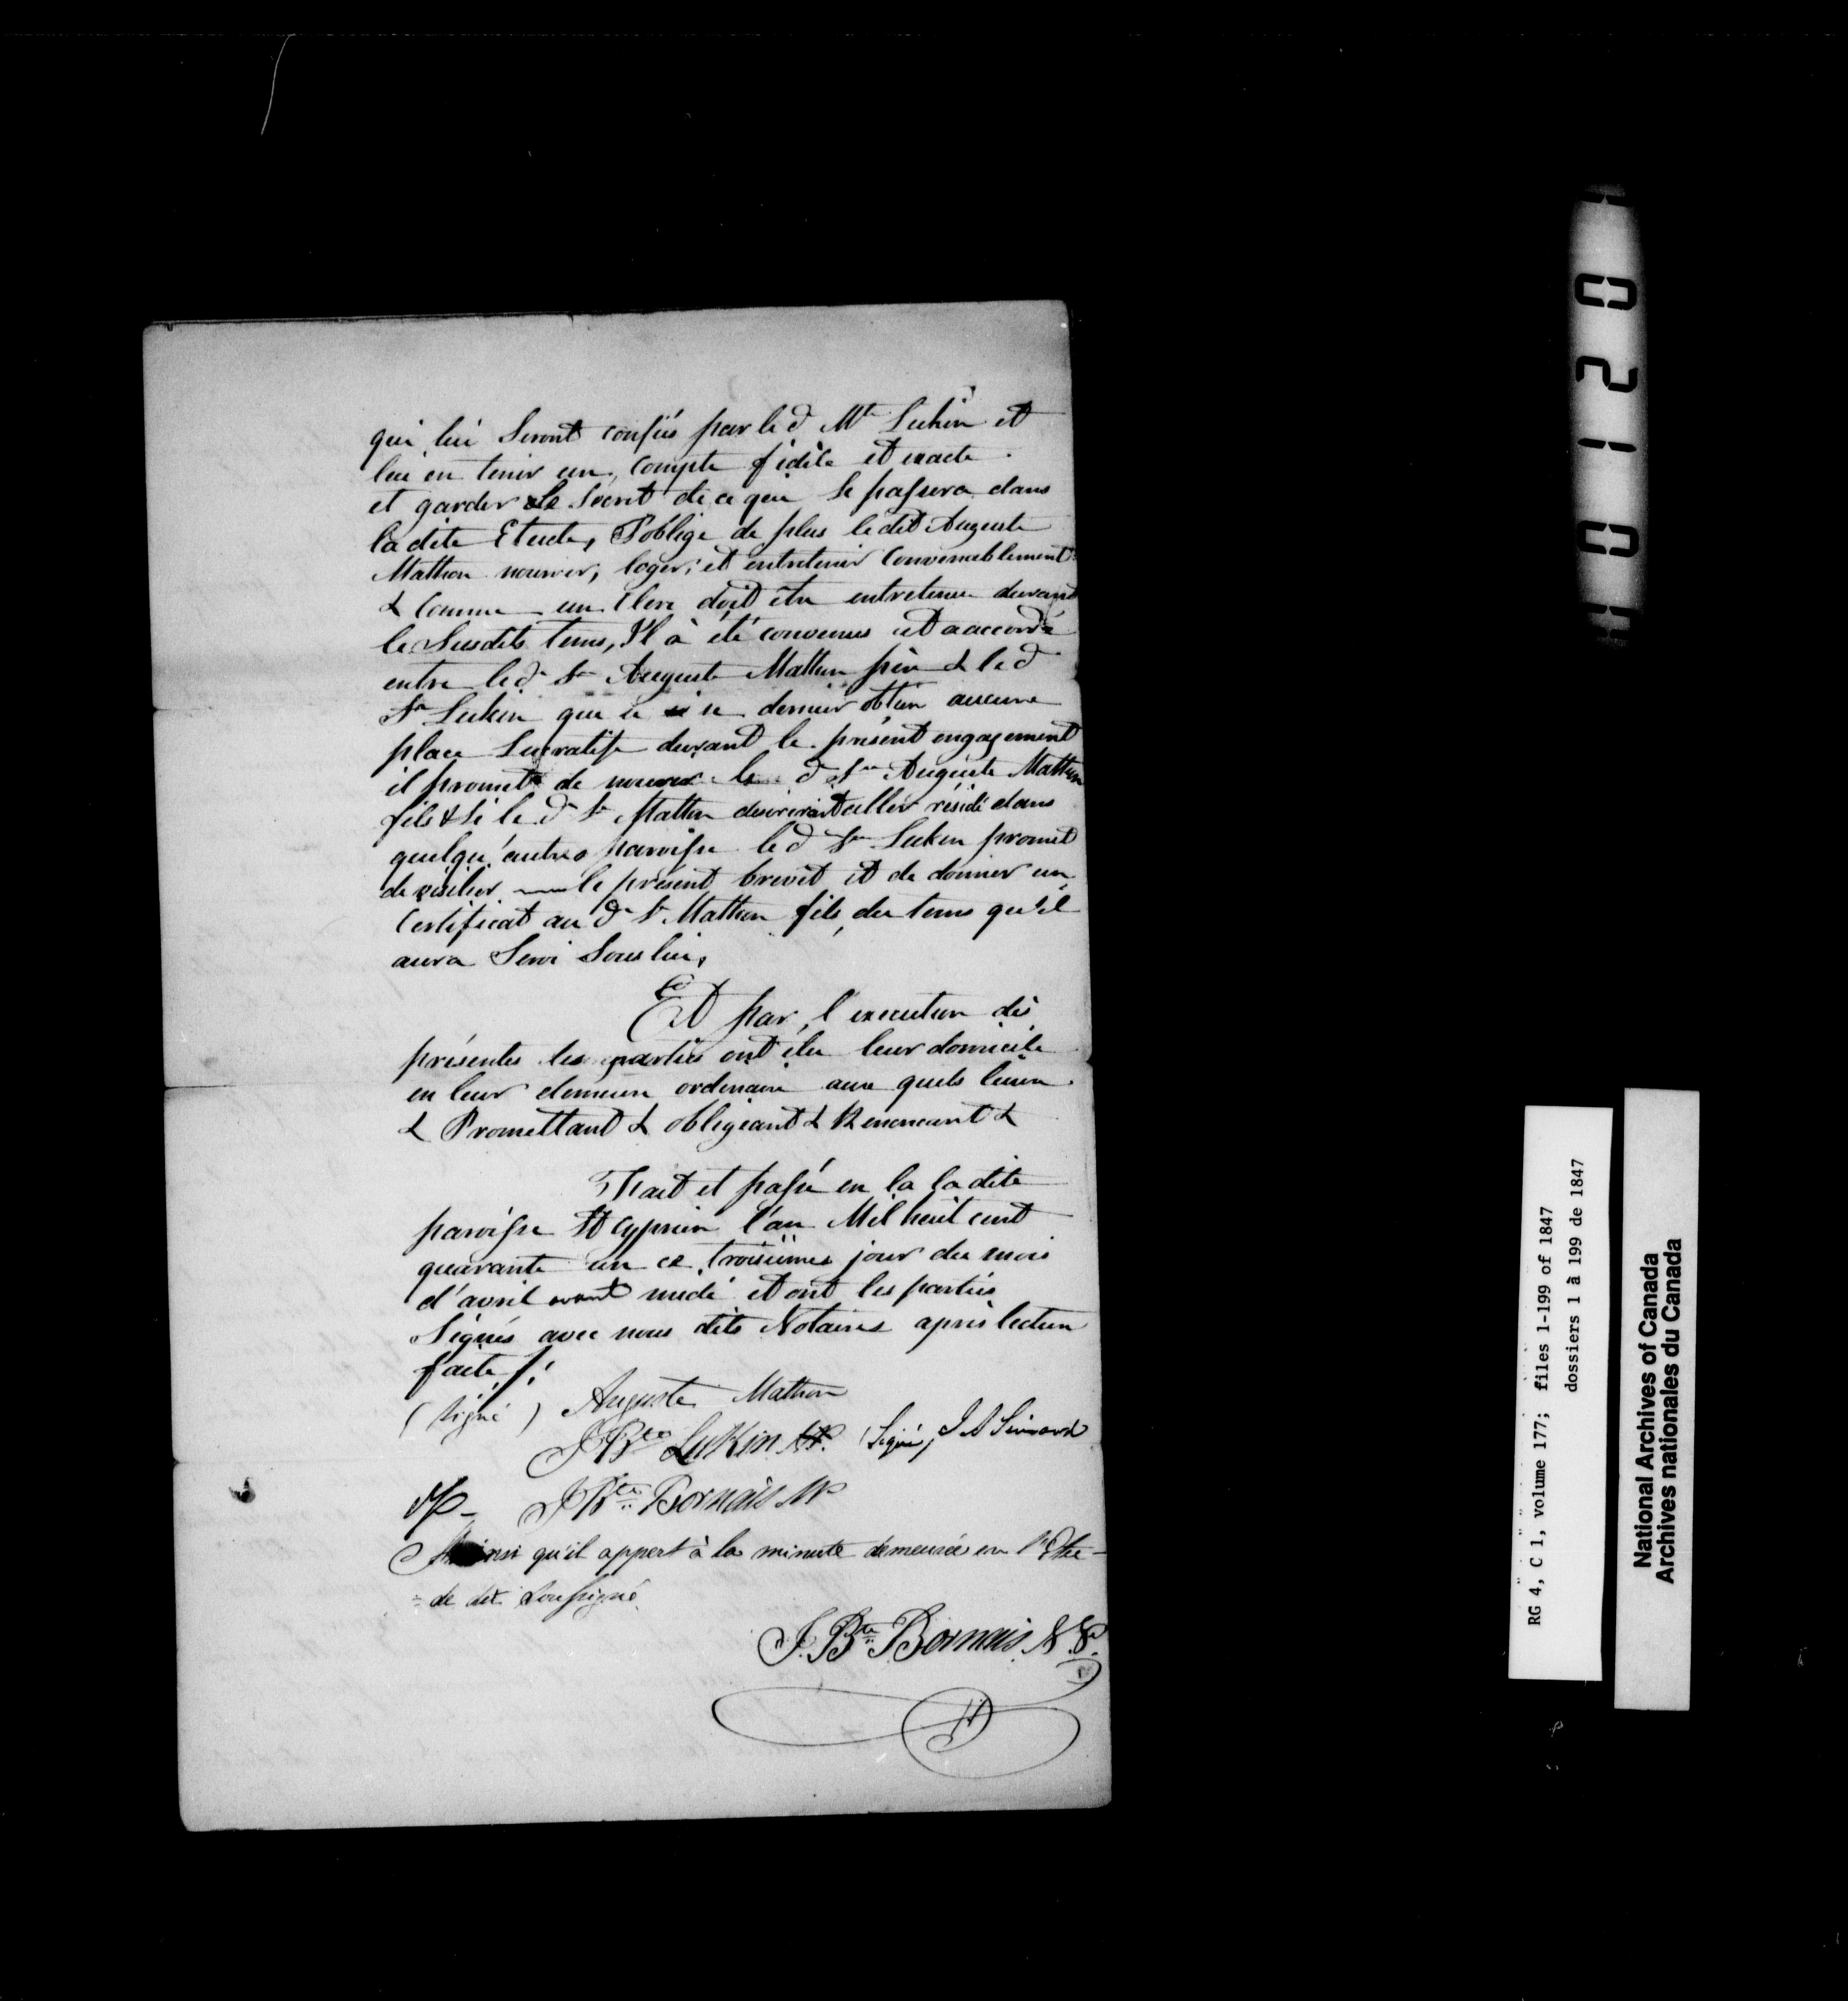 qui lui Seront confiés par le d Mtre Lukin et
lui en tenir un, compte fidèle et exacte.
et garder Le Secret de ce qui Se passera dans
la dite Etude, S'oblige de plus le dit Auguste
Mathon nourrir, loger, et entretenir Convenablement
& Comme un Clerc doit être entretenu durant
le Susdits tems, Il à été convenus et accordé
entre le d. Sr Auguste Mathon père & le d
Sr Lukin que ce dernier obtien aucune
place Lucratife durant le présent engagement
il promet de nourrir le d Sr Auguste Mathon
fils & Si le d Sr Mathon desirerait aller résidé dans
quelqu'autres paroisse le d Sr Lukin promet
de résilier le présent brevet et de donner un
Certificat au d Sr Mathon fils, du tems qu'il
aura Servi Sous lui,
Et par, l'execution des
présentes les parties ont élu leur domicile
en leur demeure ordenaire aux quels lieux
& Promettant & obligeant & Renoncant &
Fait et passé en la la dite
paroisse St Cyprien l'an Mil huit cent
quarante un ce troisiemes jour du mois
d'avril avant midi et ont les parties
Signés avec nous dits Notaires après lecture
faite /:
(Signé) Auguste Mathon
J Bte LuKin NP. (Signé) J A Simard
NP - J Bte Bornais NP
Ainsi qu'il appert à la minute demeurée en l'Etu-
=de dit Soussigné
J. Bte Bornais N.P.
0120
RG 4, C 1, volume 177; files 1-199 of 1847
dossiers 1 à 199 de 1847
National Archives of Canada
Archives nationales du Canada